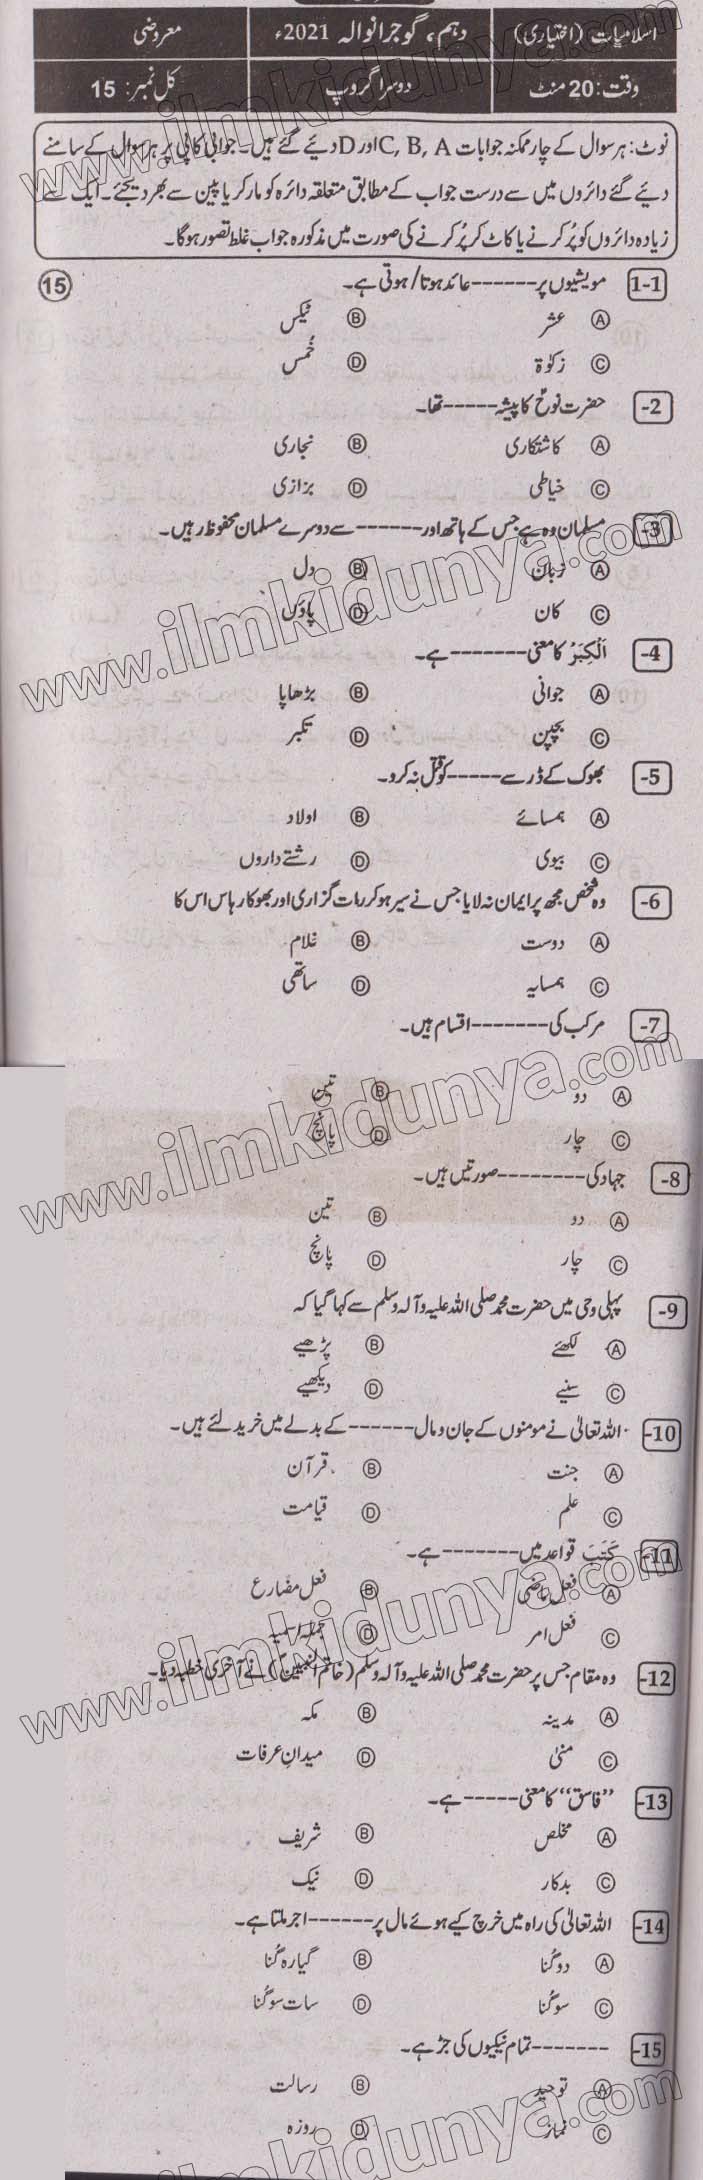 اسلامیات (اختیاری) دہم، گوجرانوالہ 2021ء معروضی
وقت: 20 منٹ دوسرا گروپ کل نمبر: 15
نوٹ: ہر سوال کے چار ممکنہ جوابات C, B, A اور D دیئے گئے ہیں۔ جوابی کاپی پر ہر سوال کے سامنے
دیئے گئے دائروں میں سے درست جواب کے مطابق متعلقہ دائرہ کو مارکر یا پین سے بھر دیجئے۔ ایک سے
زیادہ دائروں کو پُر کرنے یا کاٹ کر پُر کرنے کی صورت میں مذکورہ جواب غلط تصور ہوگا۔
1-1 مویشیوں پر------عائد ہوتا/ہوتی ہے۔ 15
A عشر B ٹیکس
C زکوٰۃ D خُمس
2- حضرت نوحؑ کا پیشہ-----تھا۔
A کاشتکاری B نجاری
C خیاطی D بزازی
3- مسلمان وہ ہے جس کے ہاتھ اور------سے دوسرے مسلمان محفوظ رہیں۔
A زبان B دل
C کان D پاؤں
4- اَلْکِبَرُ کا معنی-------ہے۔
A جوانی B بڑھاپا
C بچپن D تکبر
5- بھوک کے ڈر سے-----کو قتل نہ کرو۔
A ہمسائے B اولاد
C بیوی D رشتے داروں
6- وہ شخص مجھ پر ایمان نہ لایا جس نے سیر ہو کر رات گزاری اور بھوکا رہا اس اس کا
A دوست B غلام
C ہمسایہ D ساتھی
7- مرکب کی-------اقسام ہیں۔
A دو B تین
C چار D پانچ
8- جہاد کی--------صورتیں ہیں۔
A دو B تین
C چار D پانچ
9- پہلی وحی میں حضرت محمد صلی اللہ علیہ وآلہ وسلم سے کہا گیا کہ
A لکھئے B پڑھیے
C سنیے D دیکھیے
10- اللہ تعالیٰ نے مومنوں کے جان و مال------کے بدلے میں خرید لئے ہیں۔
A جنت B قرآن
C علم D قیامت
11- کَتَبَ قواعد میں-------ہے۔
A فعل ماضی B فعل مضارع
C فعل امر D جملہ اسمیہ
12- وہ مقام جس پر حضرت محمد صلی اللہ علیہ وآلہ وسلم (خاتم النبیین) نے آخری خطبہ دیا۔
A مدینہ B مکہ
C منیٰ D میدانِ عرفات
13- ”فاسق“ کا معنی-----ہے۔
A مخلص B شریف
C بدکار D نیک
14- اللہ تعالیٰ کی راہ میں خرچ کیے ہوئے مال پر------اجر ملتا ہے۔
A دو گُنا B گیارہ گُنا
C سو گُنا D سات سو گُنا
15- -------تمام نیکیوں کی جڑ ہے۔
A توحید B رسالت
C نماز D روزہ
www.ilmkidunya.com
www.ilmkidunya.com
www.ilmkidunya.com
www.ilmkidunya.com
www.ilmkidunya.com